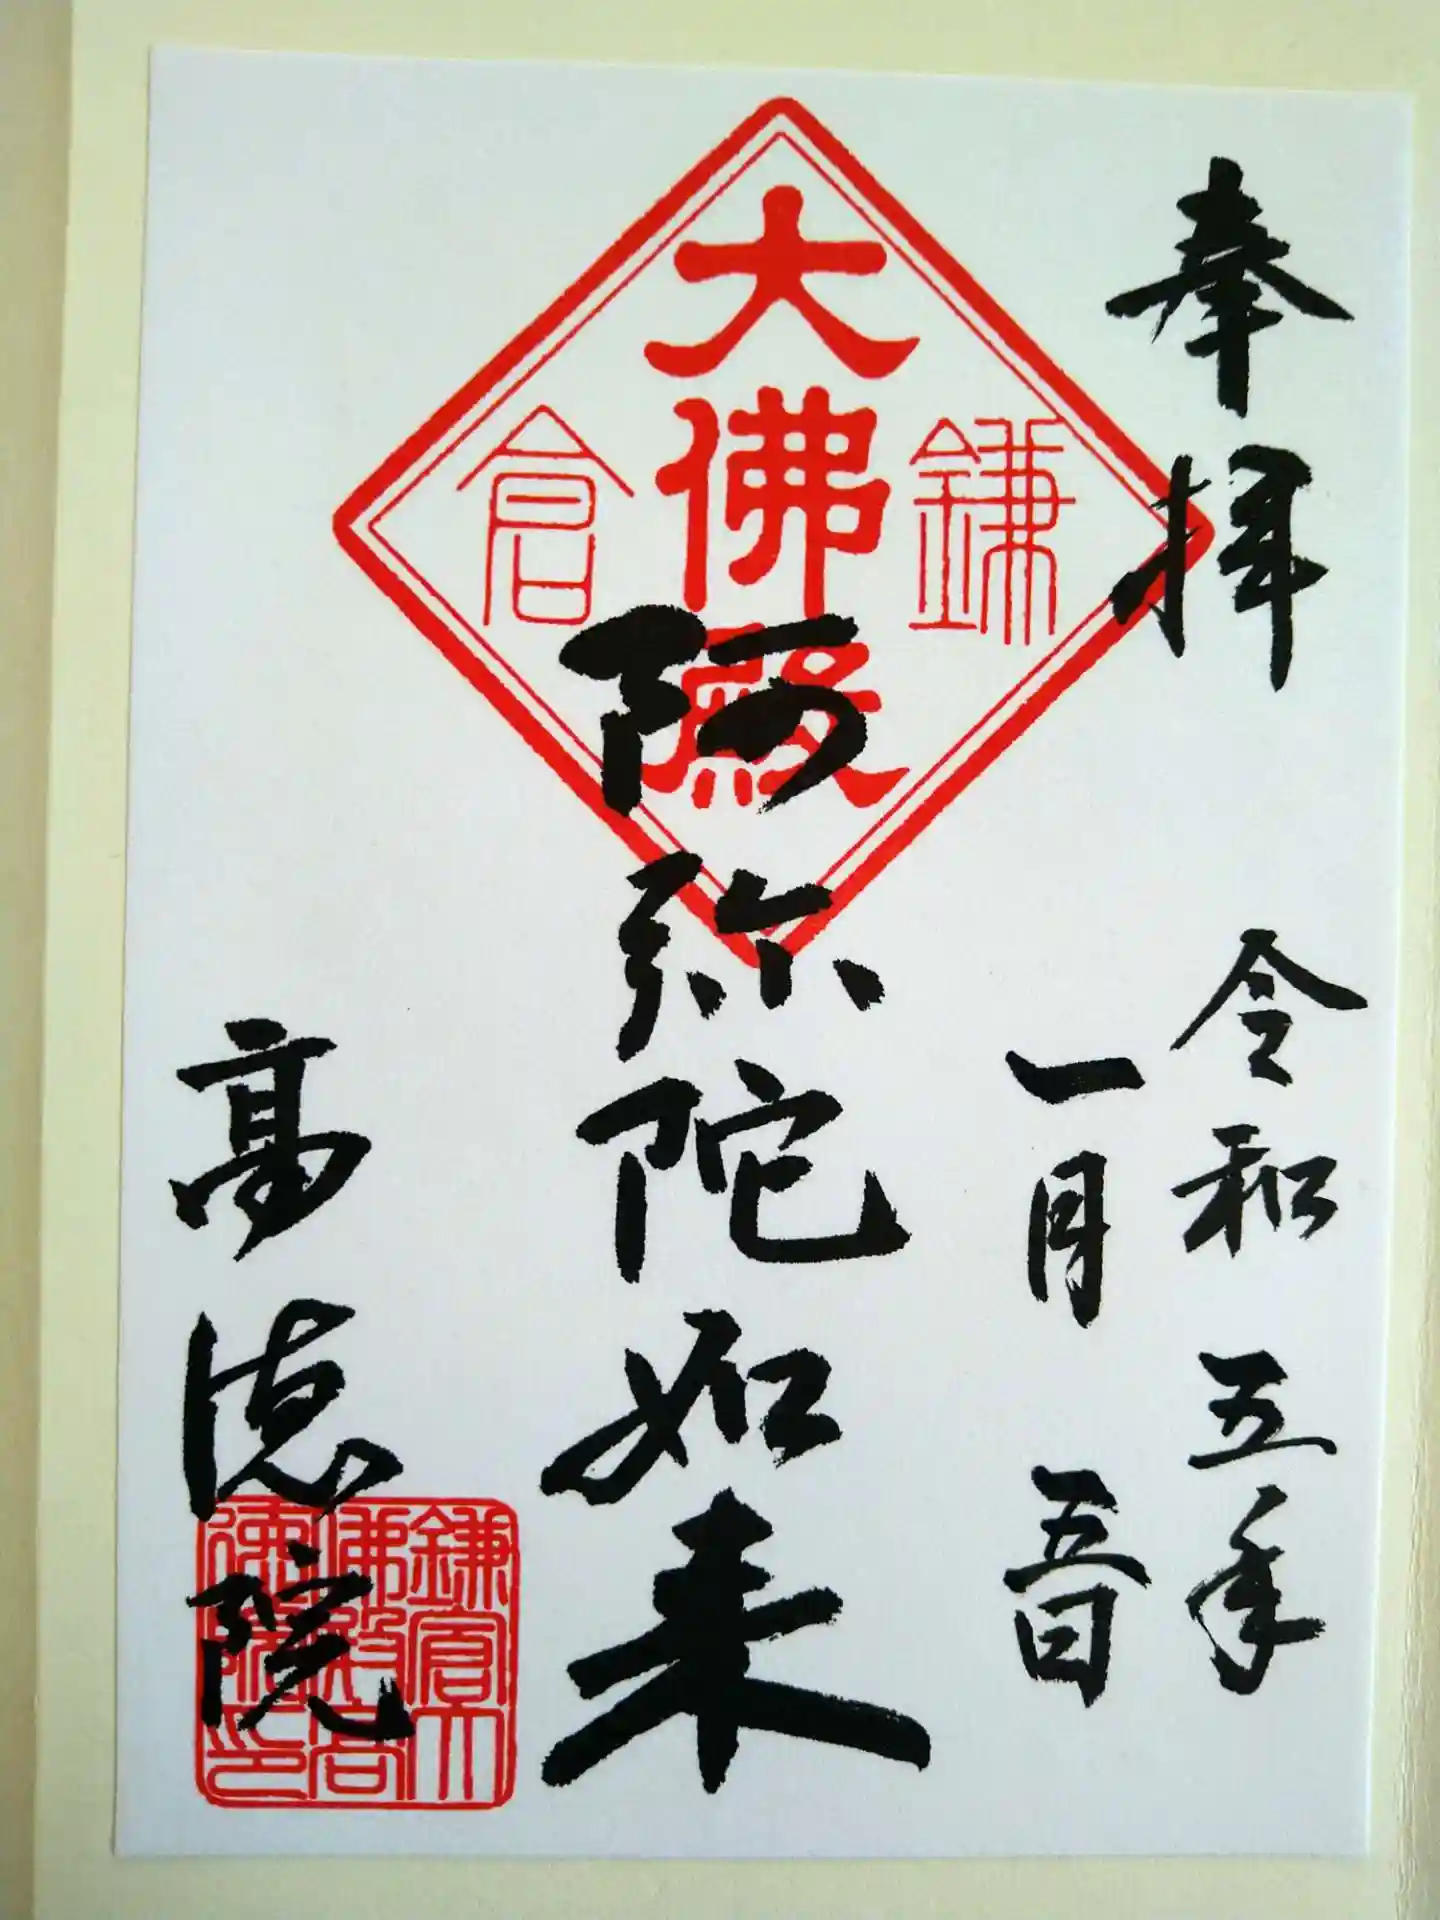 奉拝
令和五年
一月五日
鎌倉
大佛殿
阿弥陀如来
高徳院
鎌倉大
佛殿高
徳院印